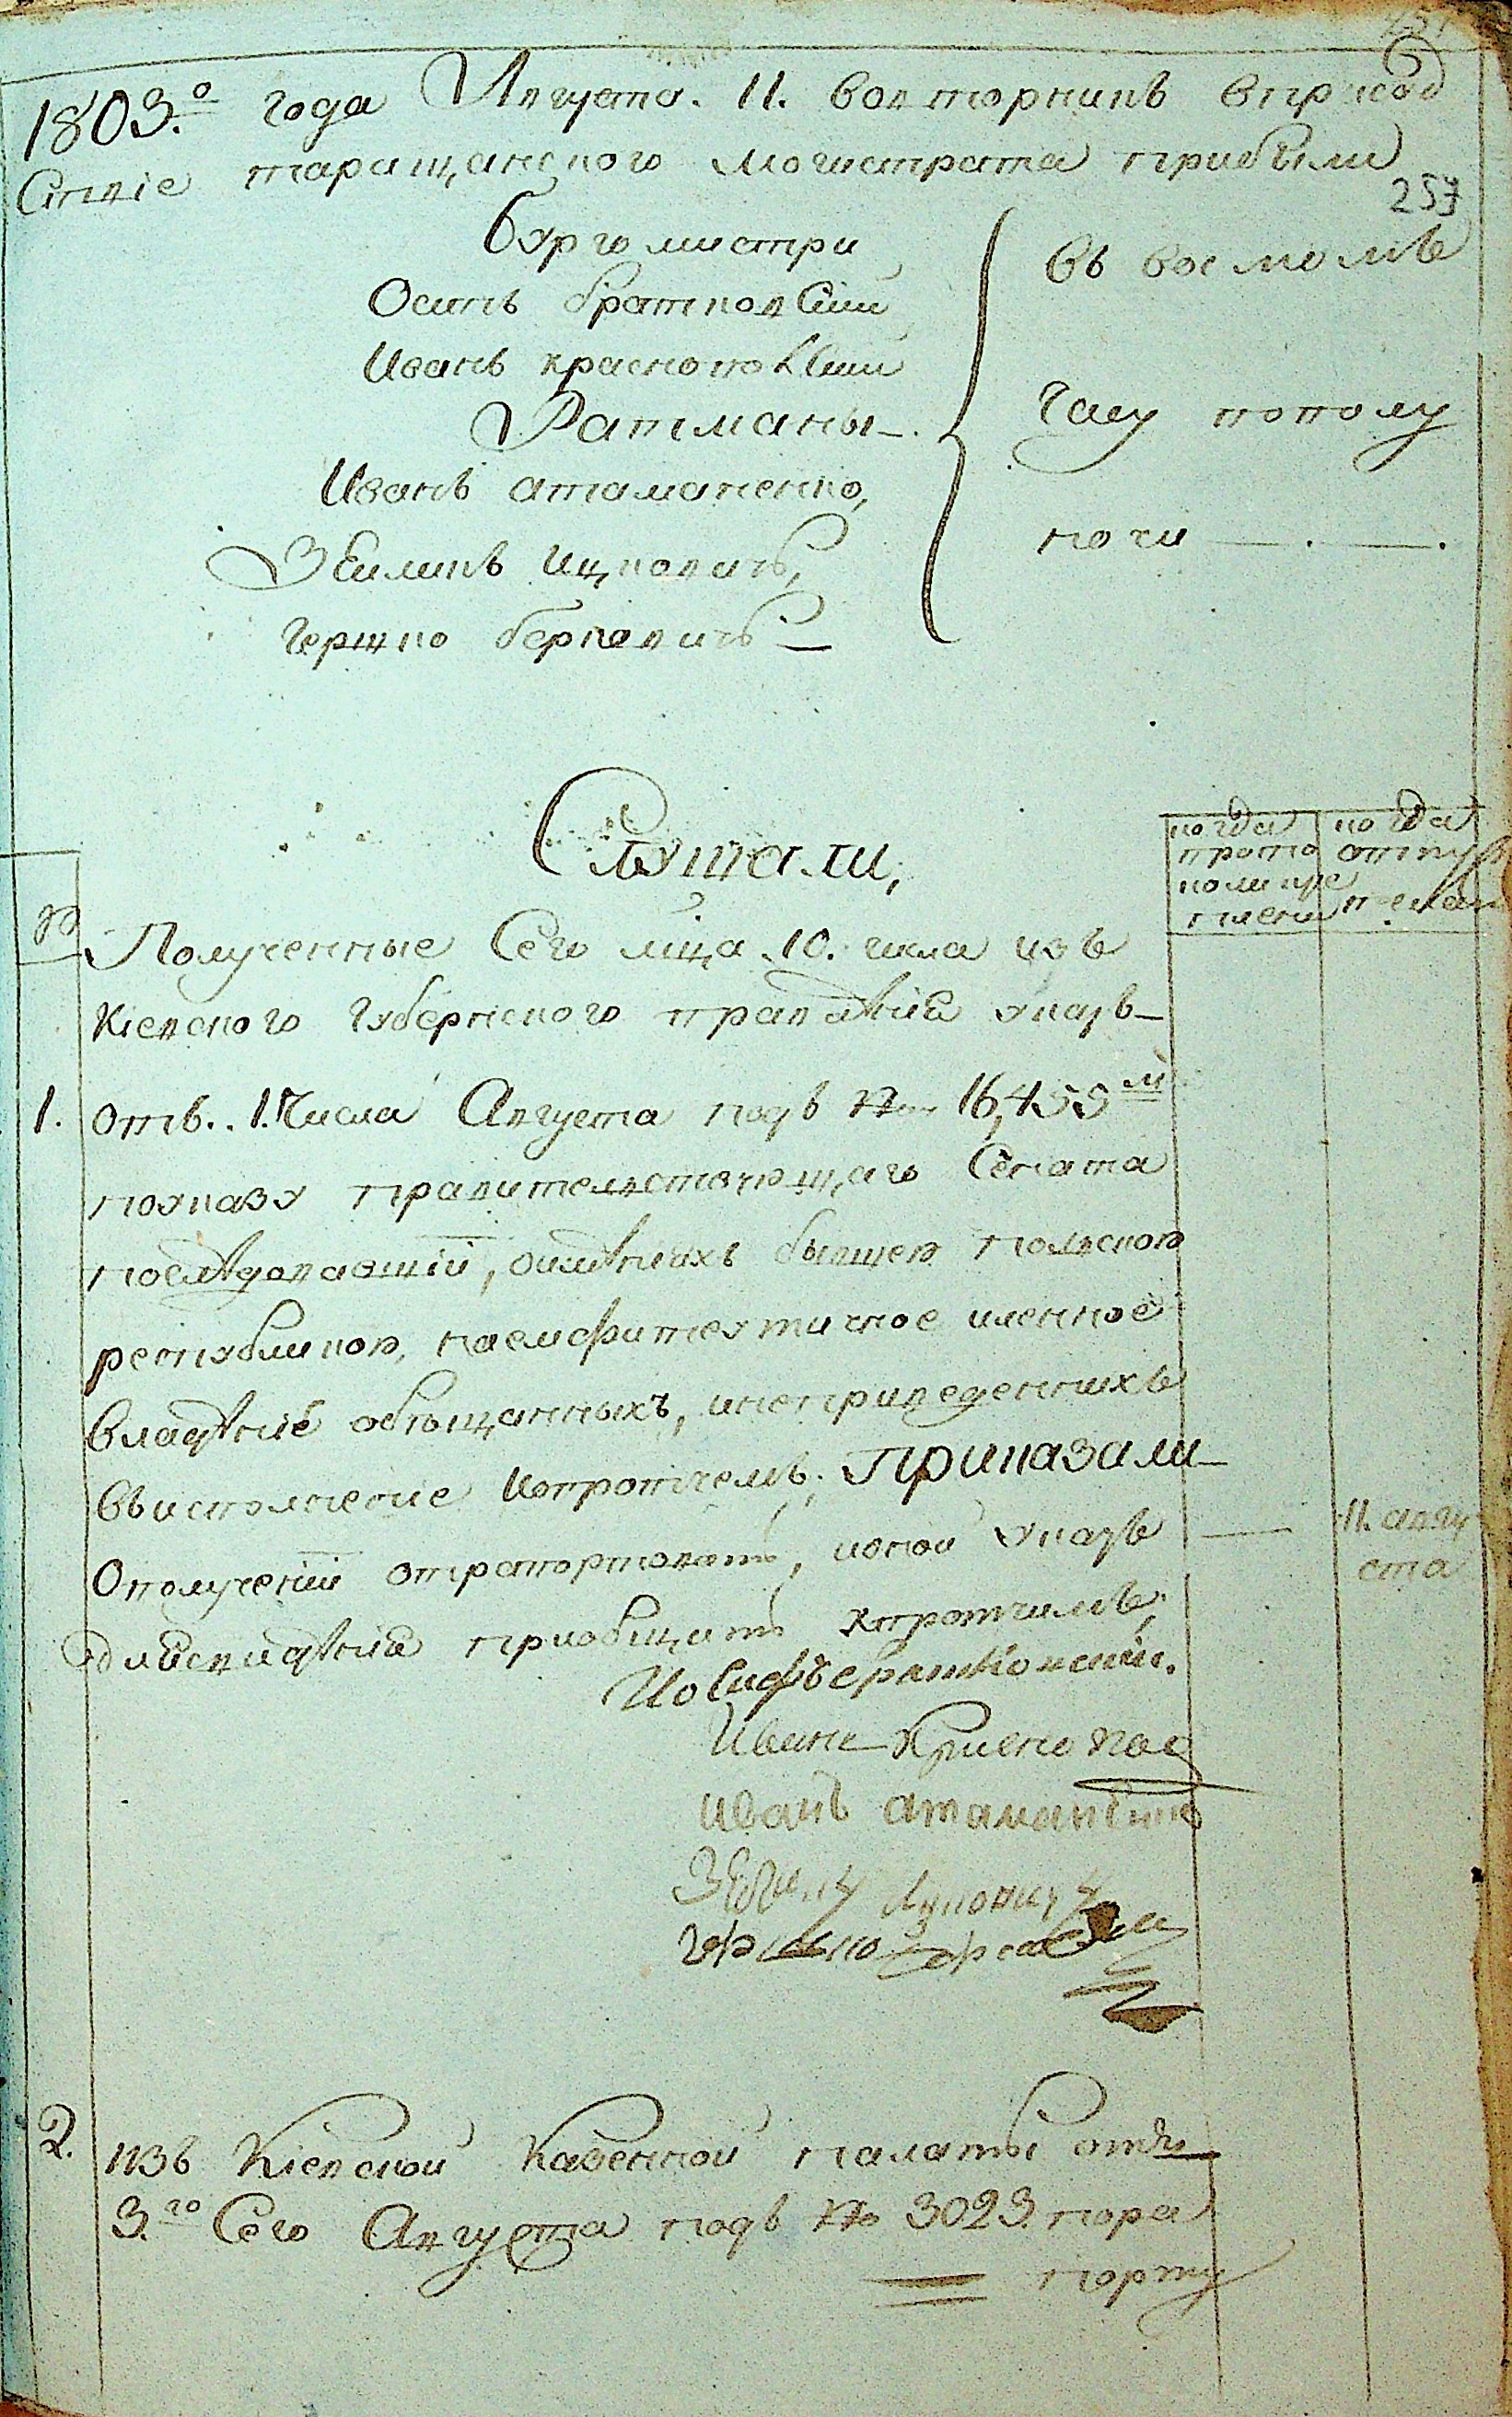 257
1803.о года Августа. 11. вовторникъ вприсуд
ствіе таращанского Могистрата прибыли
Бургомистри
Осипъ братковскій
Иванъ краснополскій
Ратманы
Иванъ атаманенко,
Зеликъ ицковичъ,
гершко берковичъ
въ восмомъ
часу пополу
ночи
Слушали,
когда прото коли кре плени
когда отпу
Полученные Сего мца 10. числа изъ
Кіевского губернского правлѣнія указъ
1. отъ 1. Числа Августа подъ № 16,455м
поуказу правителствующаго Сената
послѣдовавшій, оимѣніихъ бывшею полскою
републикою, наемфитеутичное иленное
владѣніе обѣщанныхъ, инеприведенныхъ
въисполненіе Ипротчемъ; Приказали
Ополученіи отрапортовать, ионой Указъ
дляисвидѣнія приобщить кпротчимъ;
11. авгу
ста
Иосифъ братковскій.
Иванъ Краснопол
иванъ атаманенко
Зеликъ Ицковичъ
гершко берковичъ
2. изъ Кіевской Казенной палаты отъ
3.го Сего Августа подъ № 3023. пора
порту